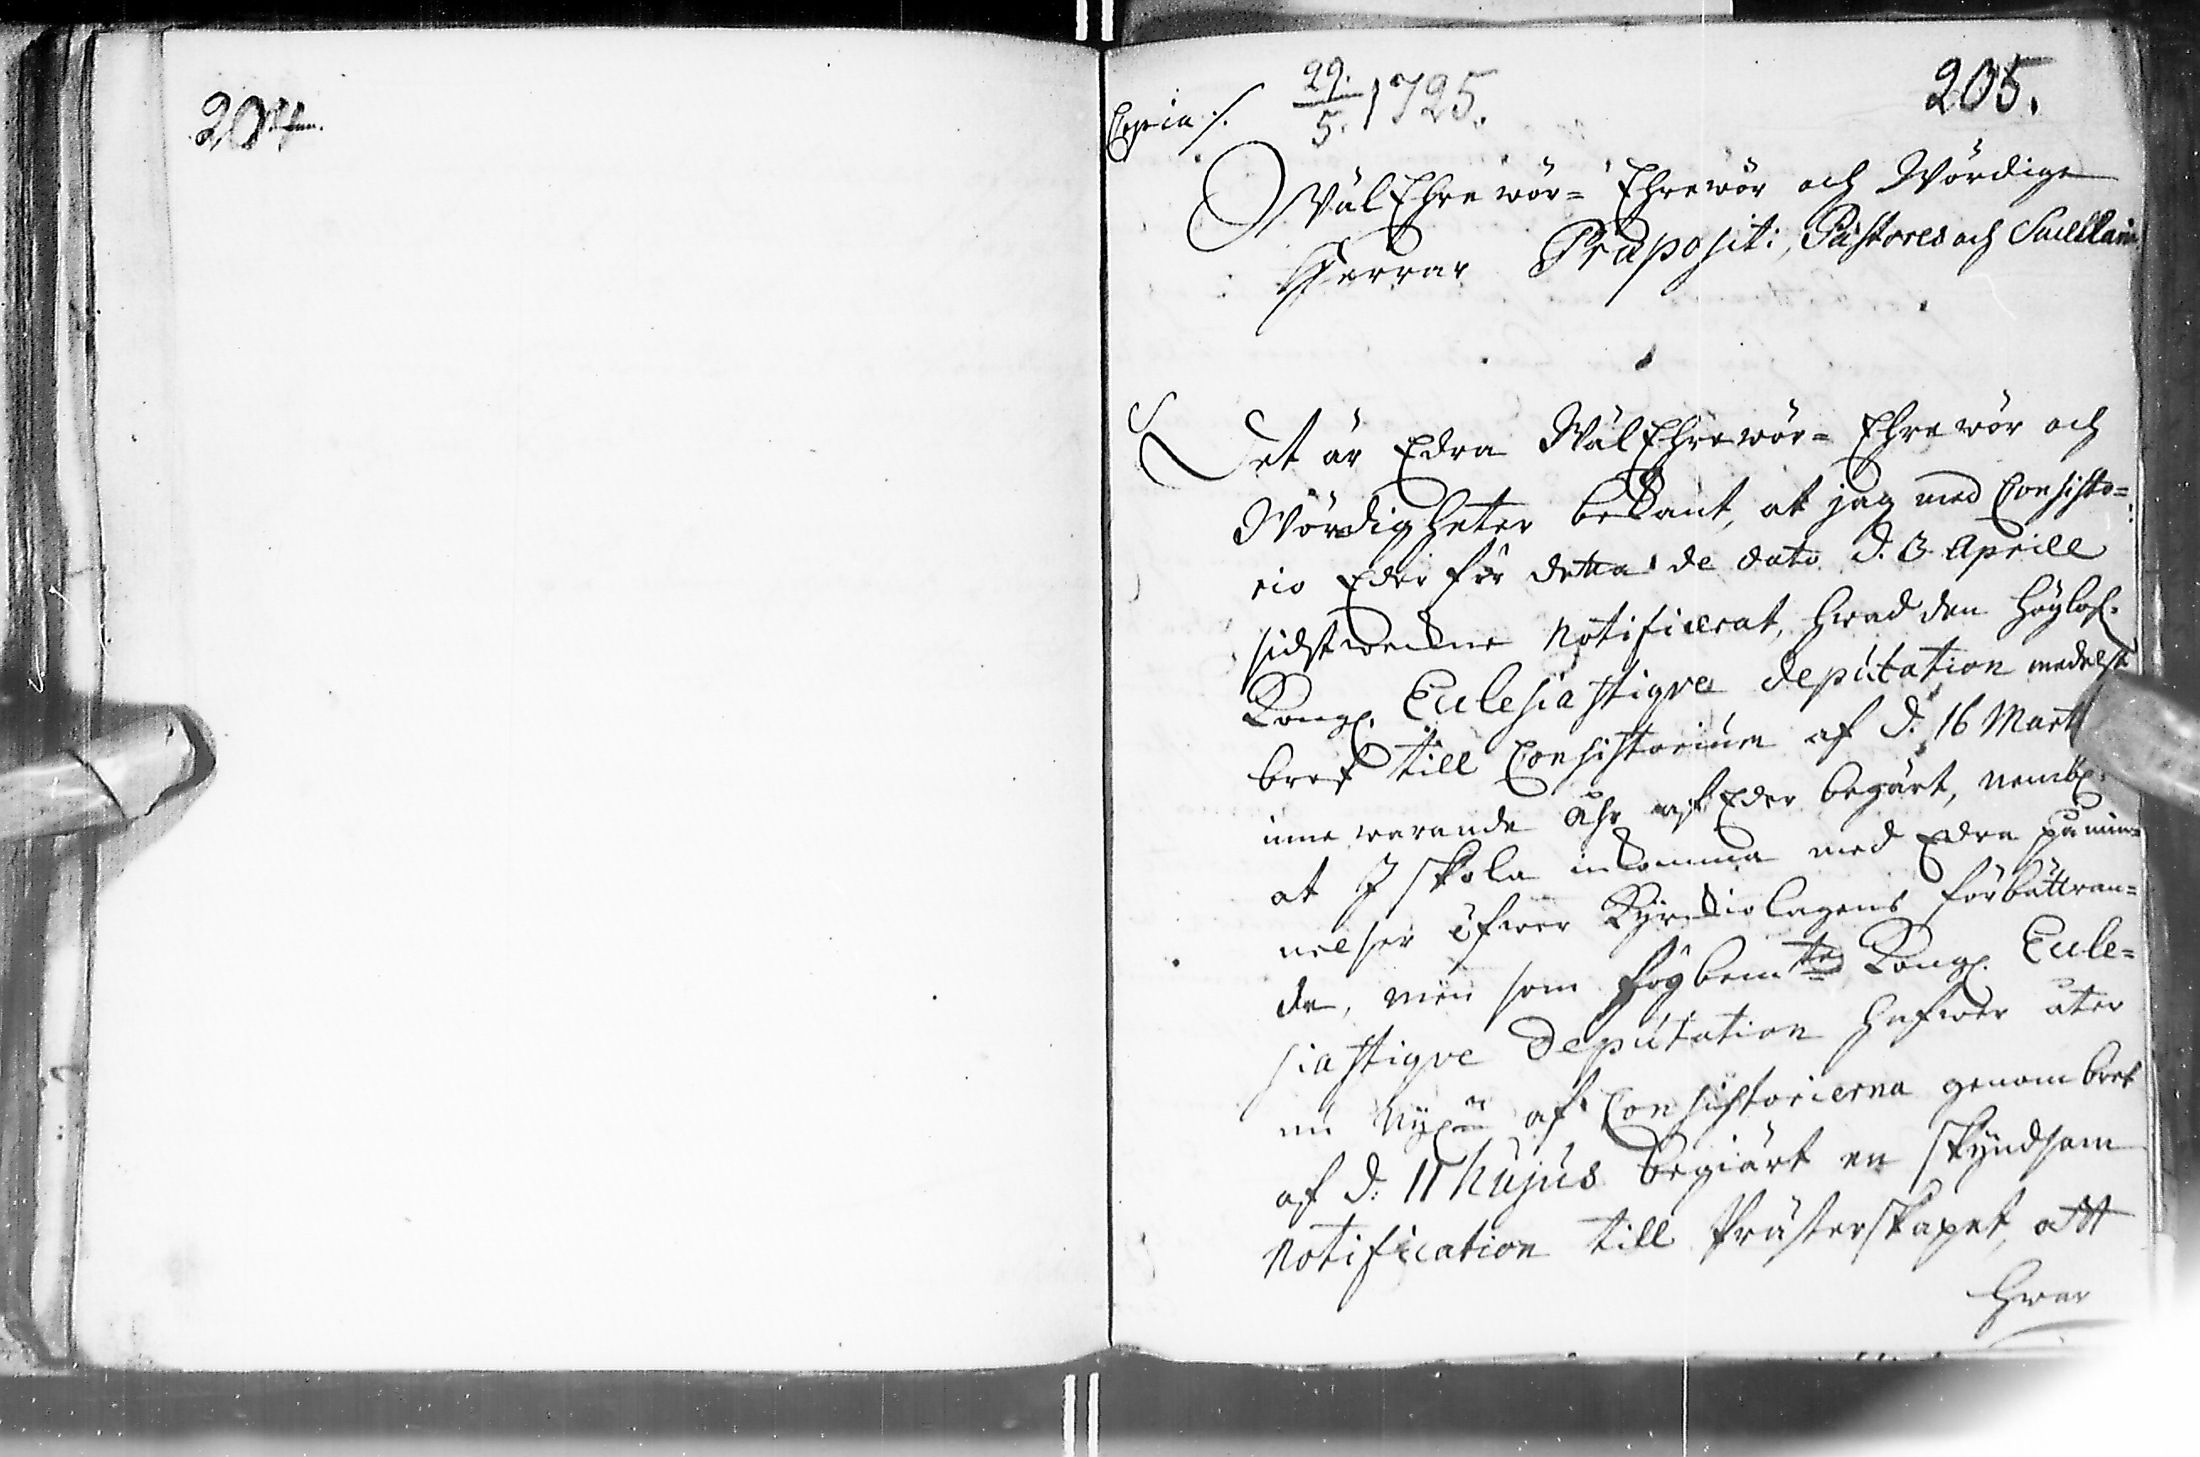 204.
Copia /.
29./5. 1725.
205.
WälEhrewör= Ehrewör och Wördige
Herrar Præpositi, Pastores och Sacellani
Det är Edra WälEhrewör= Ehrewör och
Wördigheter bekant, at jag med Consisto=
rio Eder för detta de dato d. 3 Aprill
sidstwekne notificerat, hwad den Höglofl.
Kongl. Ecclesiastiqve deputation medelst
bref till Consistorium af d. 16 Mart
inne warande Åhr af Eder begärt, nembl.
at I skola inkomma med Edra påmin=
nelser öfwer Kyrkiolagens förbättran=
de, men som högbemte Kongl. Eccle=
siastiqve Deputation hafwer åter
nu nyl:n af Consistorierna genom bref
af d. 11 hujus begiärt en skyndsam
Notification till Prästerskapet, att
hwar